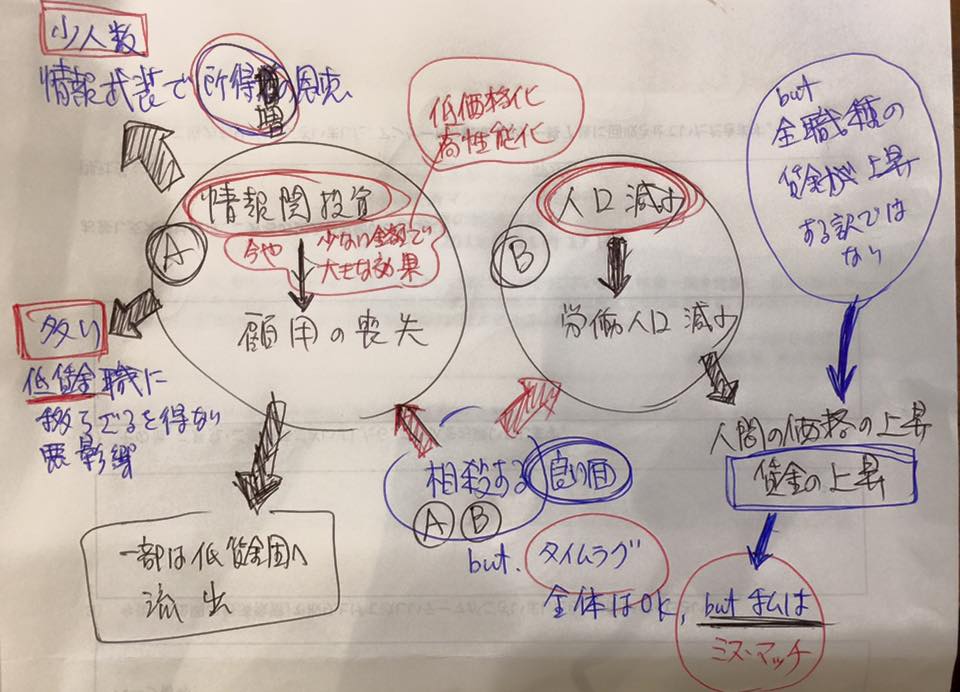 少人数
情報武装で所得増の恩恵
低価格化
高性能化
情報関投資
A
今や
少ない金額で
大きな効果
顧用の喪失
多い
低賃金職に
移らざるを得ない
悪影響
一部は低賃金国へ
流出
人口減少
B
労働人口減少
but
全職種の
賃金が上昇
する訳では
ない
人間の価格の上昇
賃金の上昇
相殺する
良い面
A B
but、タイムラグ
全体はOK,
but 私は
ミス・マッチ